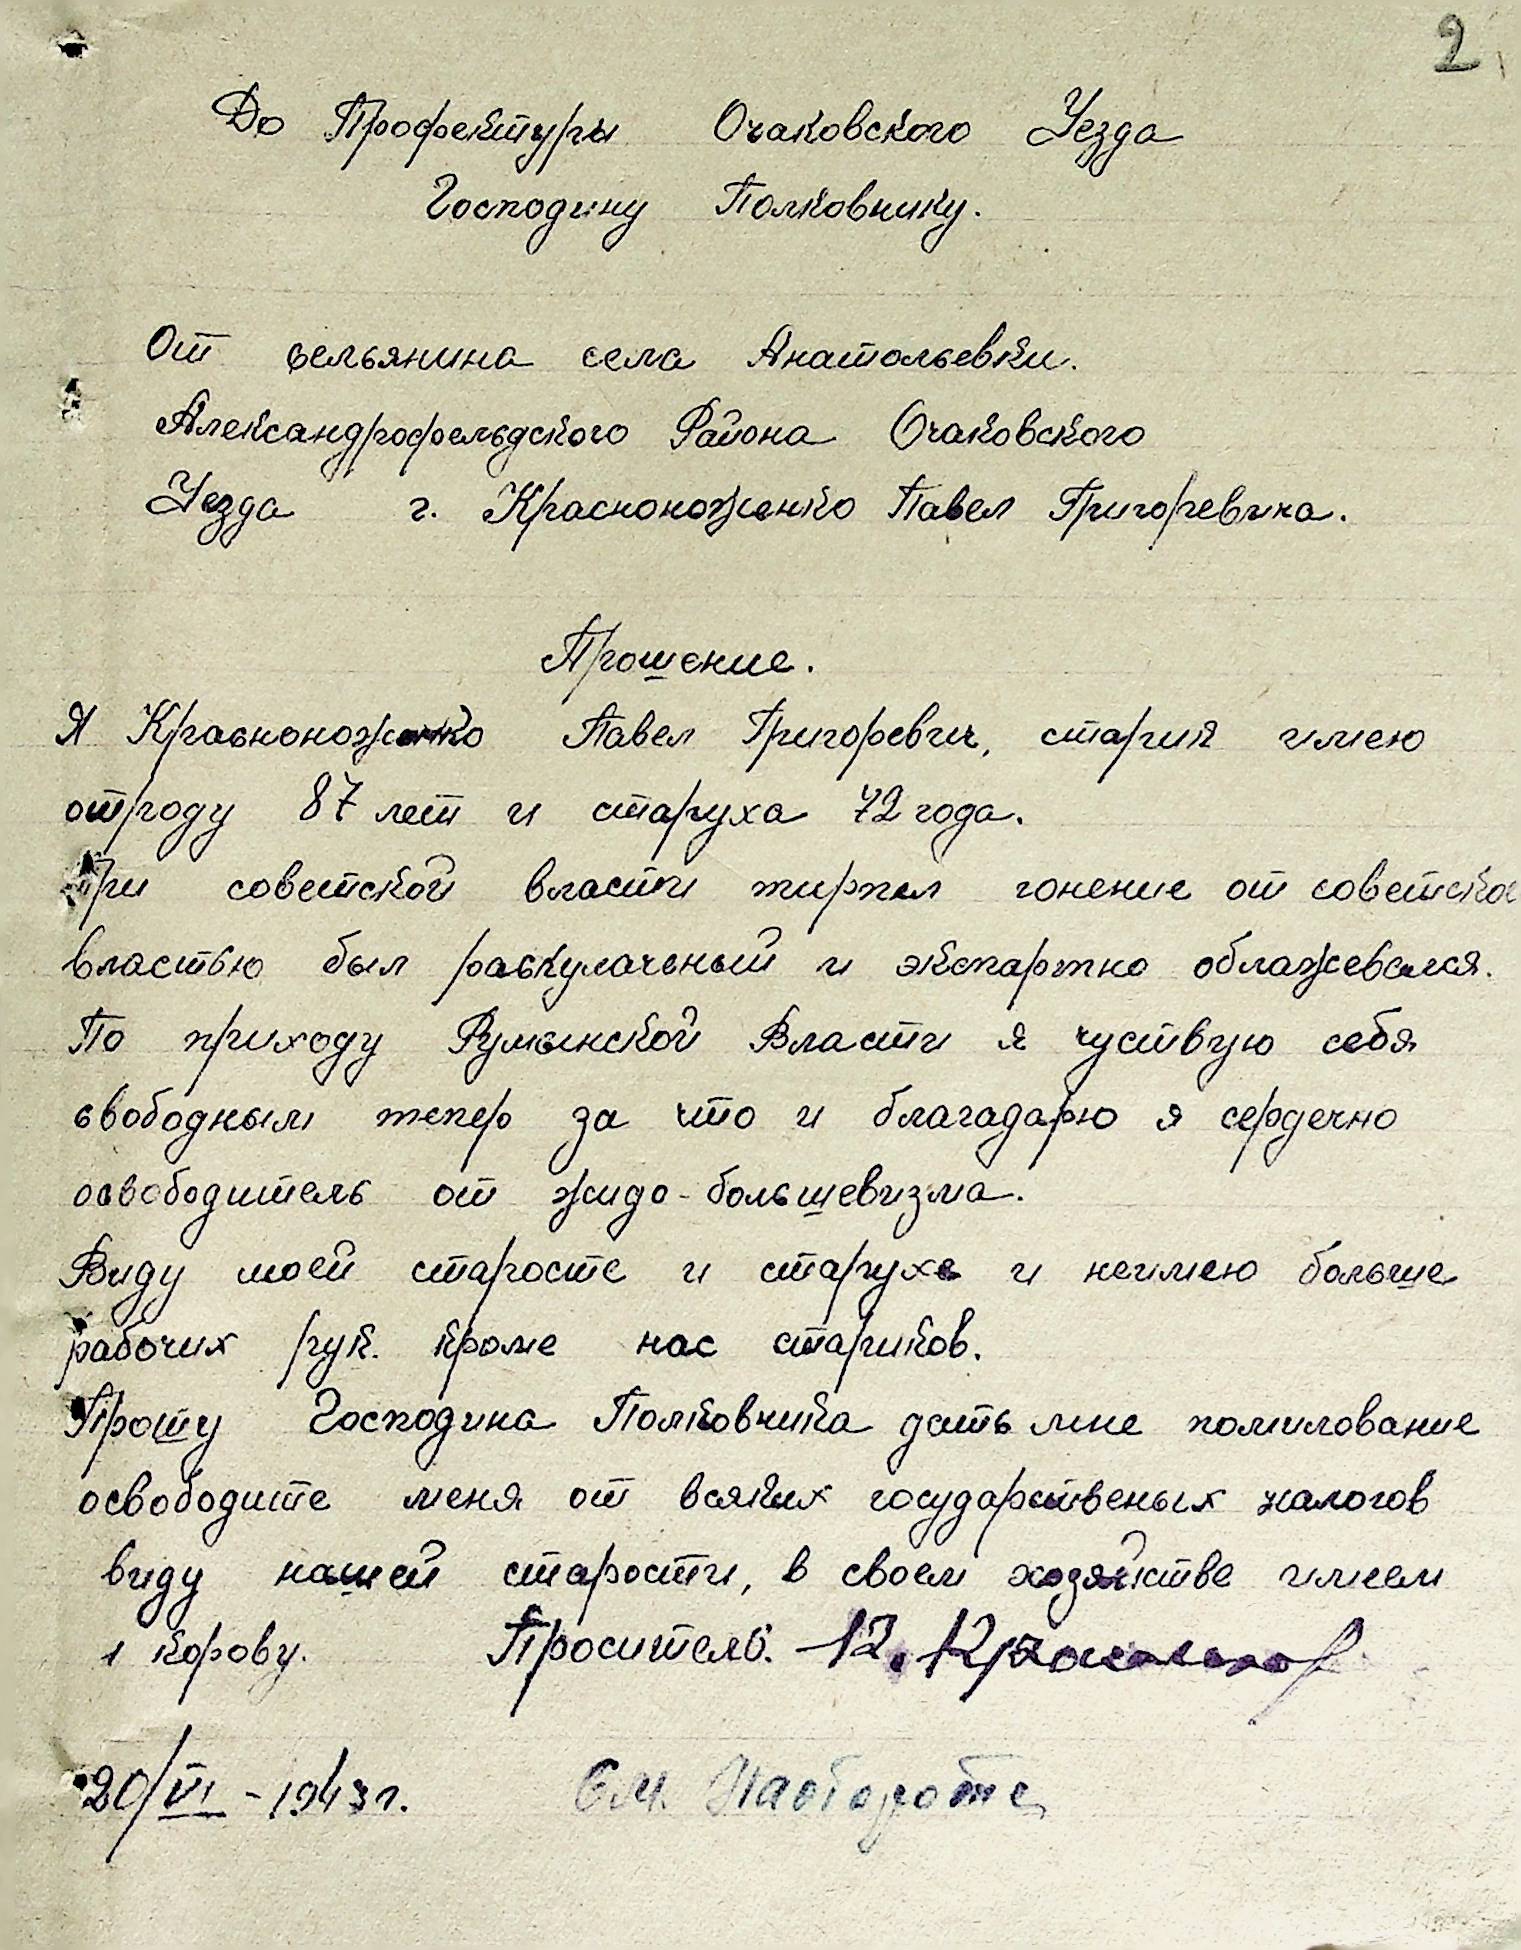 2
До Профектуры Очаковского Уезда
Господину Полковнику.
От сельянина села Анатольевки.
Александрофельдского Района Очаковского
Уезда г. Красноноженко Павел Григоревича.
Прошение.
Я Красноноженко Павел Григоревич, старик имею
отроду 87 лет и старуха 72 года.
При советской власти тирпел гонение от советской
властью был раскулаченый и экспертно облажевался.
По приходу Румынской Власти я чуствую себя
свободным тепер за что и благадарю я сердечно
освободитель от жидо-большевизма.
Виду моей старосте и старухе и неимею больше
рабочих рук. кроме нас стариков.
Прошу Господина Полковника дать мне помилование
освободите меня от всяких государственых налогов
виду нашей старости, в своем хозяйстве имеем
1 корову. Проситель: П. Краснонож
20/VI - 1943 г.
См. Наоборотe